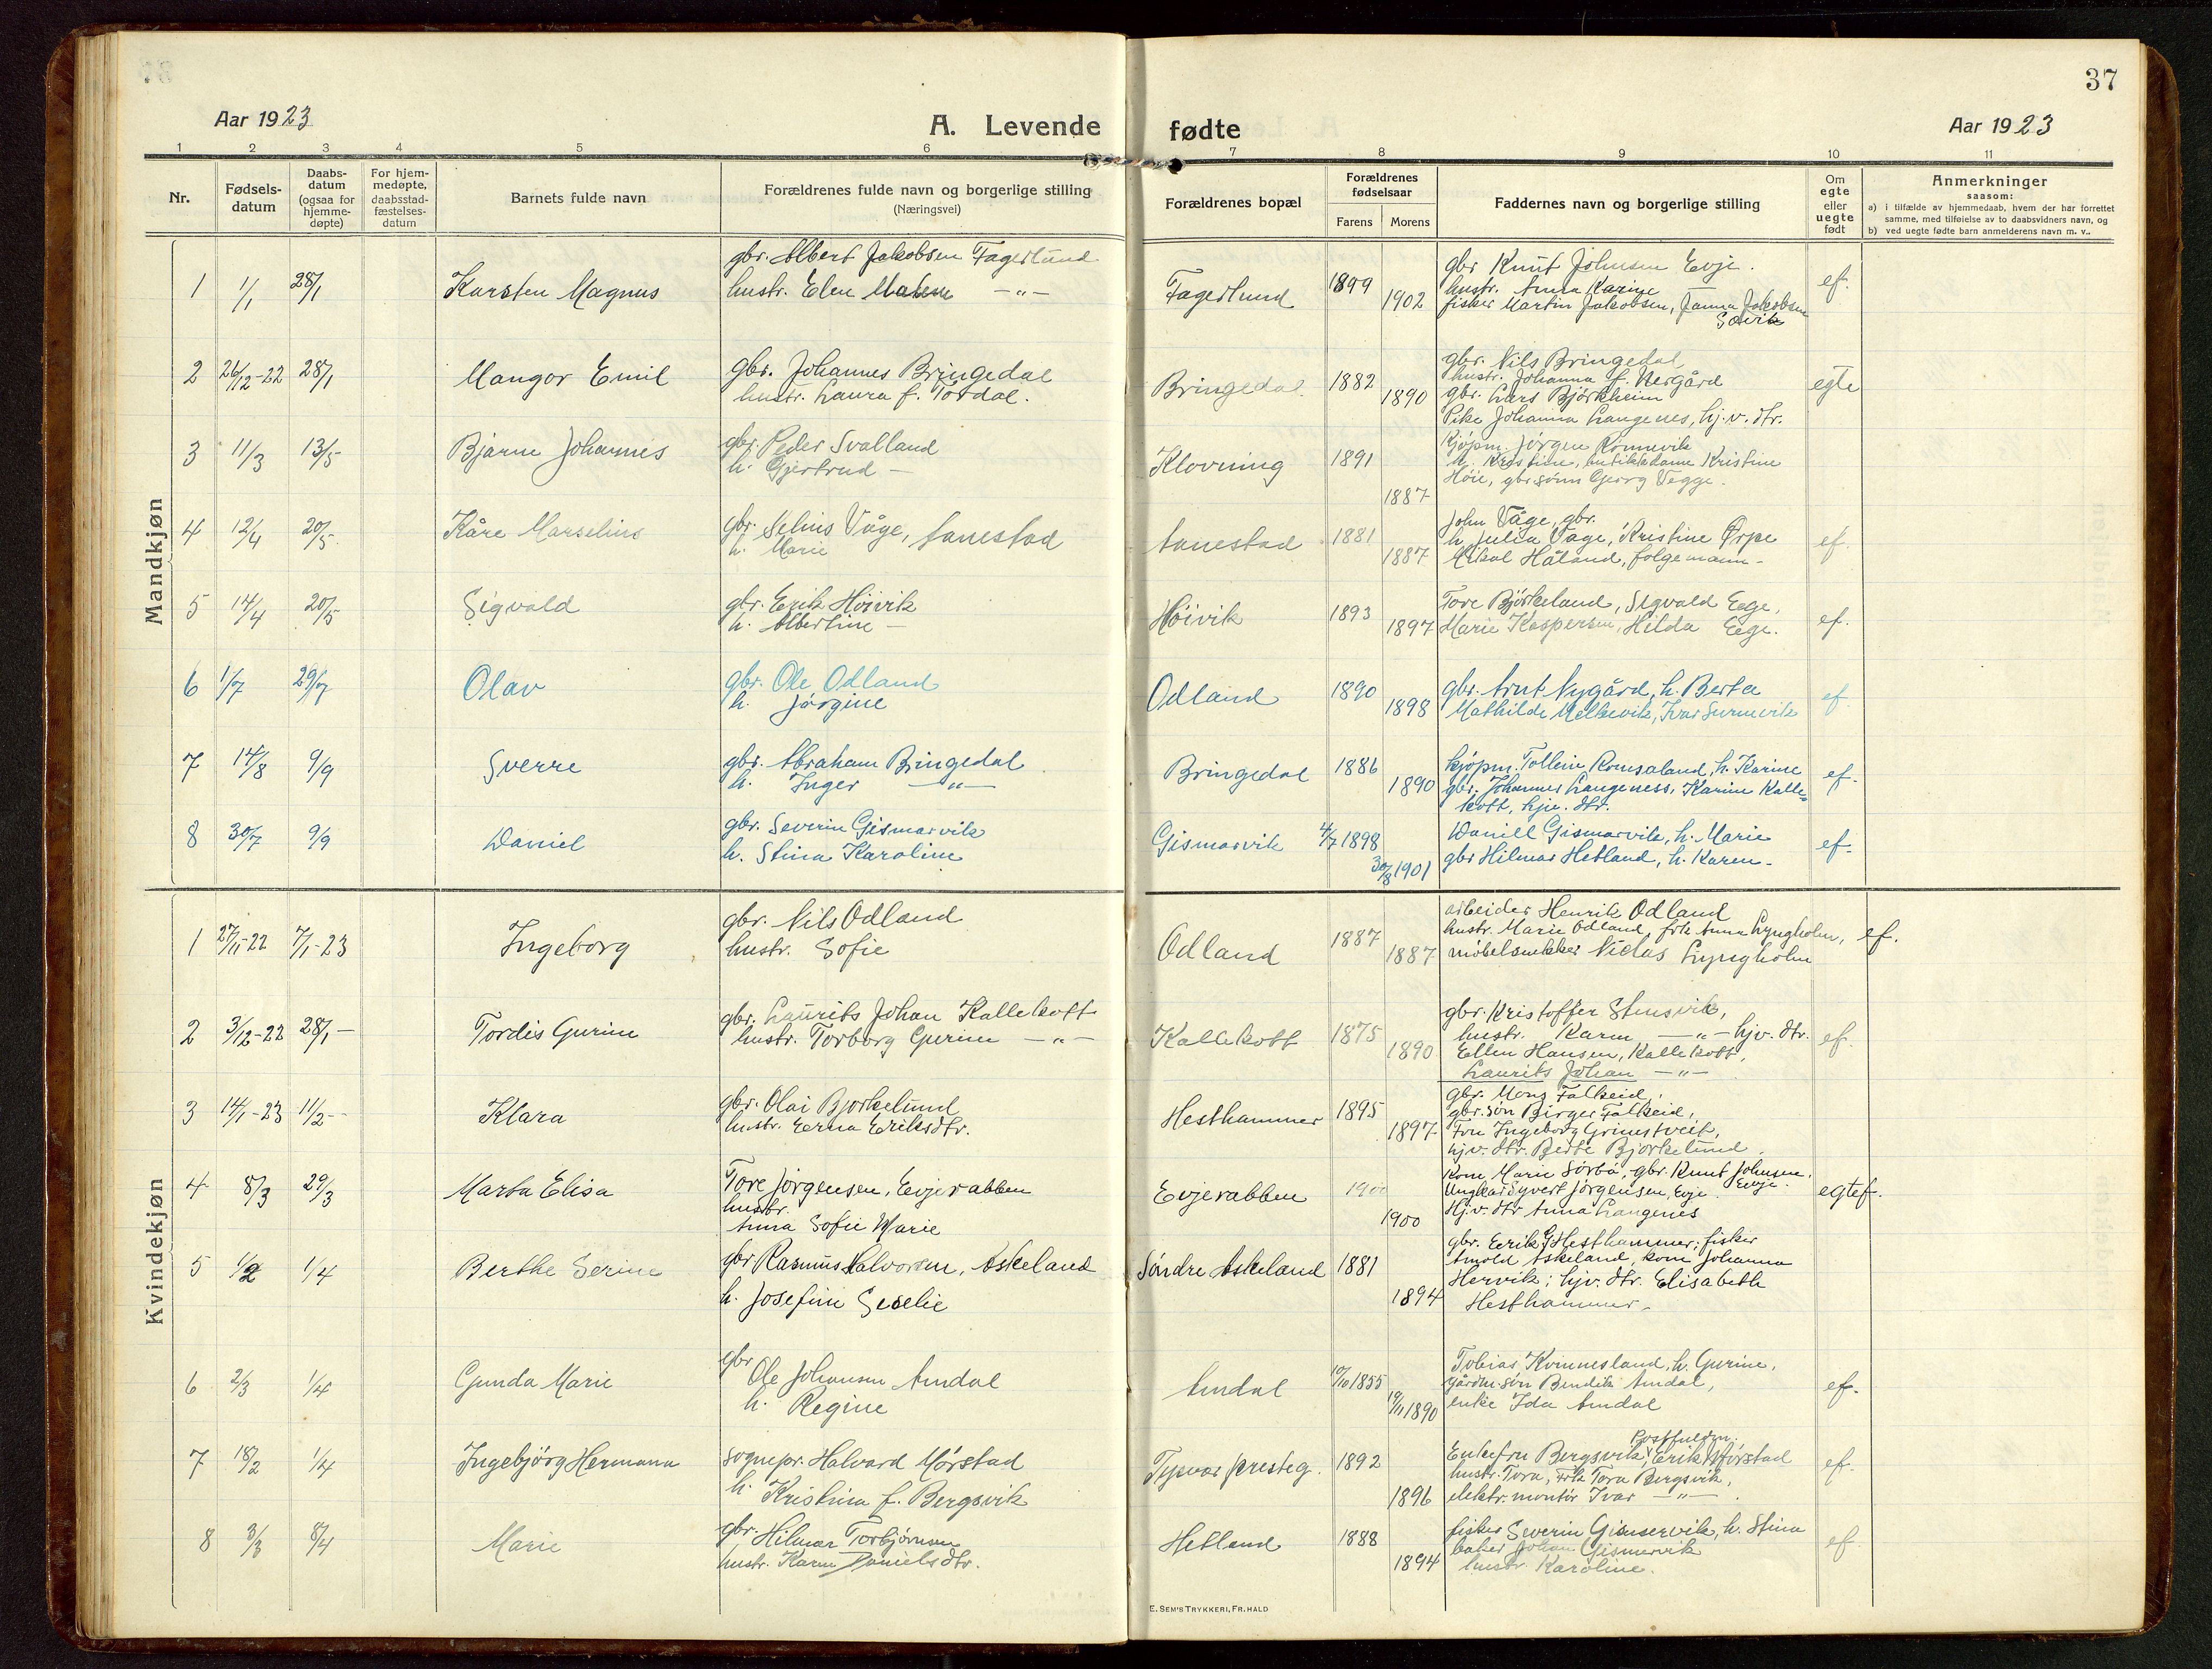 37
Aar 1923
A. Levende fødte
Aar 1923
1 2 3 4 5 6 7 8 9 10 11
Nr.
Fødsels-
datum
Daabs-
datum
(ogsaa for
hjemme-
døpte)
For hjem-
medøpte,
daabsstad-
fæstelses-
datum
Barnets fulde navn
Forældrenes fulde navn og borgerlige stilling
(Næringsvei)
Forældrenes bopæl
Forældrenes
fødselsaar
Farens Morens
Faddernes navn og borgerlige stilling
Om
egte
eller
uegte
født
Anmerkninger
saasom:
a) i tilfælde av hjemmedaab, hvem der har forrettet
samme, med tilføielse av to daabsvidners navn, og
b) ved uegte fødte barn anmelderens navn m. v..
Mandkjøn
1 1/1 28/1 Karsten Magnus
gbr. Albert Jakobsen Fagerlund
hustr. Elen Malene —"—
Fagerlund 1899 1902
gbr Knut Johnsen Evje.
hustr. Anna Karine —
fisker Martin Jakobsen, Janna Jakobsen
Søvik
ef.
2 26/12-22 28/1 Mangor Emil
gbr. Johannes Bringedal
hustr. Laura f. Tordal.
Bringedal. 1882 1890
gbr. Nils Bringedal
hustr. Johanna f. Nergård
gbr. Lars Bjørkheim
Pike Johanna Langenes, hj.v. dtr.
egte
3 11/3 13/5 Bjarne Johannes
gbr. Peder Svalland
h. Gjertrud —
Klovning 1891 1887
Kjøpm. Jørgen Rønnevik
h. Kristine, butikkdame Kristine
Høie, gbr.sønn Georg Vegge.
4 12/4 20/5 Kåre Marselius
gbr. Selius Våge, Aanestad
h. Marie
Aanestad 1881 1887
John Våge, gbr.
h. Julia Våge, Kristine Ørpe
Mikal Håland, følgemann -
ef.
5 14/4 20/5 Sigvald
gbr. Erik Høivik
h. Albertine —
Høivik 1893 1897
Tore Bjørkeland, Sigvald Eege,
Marie Kaspersen, Hilda Eege.
ef.
6 1/7 29/7 Olav
gbr. Ole Odland
h. Jørgine
Odland 1890 1898
gbr. Arnt Nygård, h. Berta
Mathilde Melkevik, Ivar Surnevik
ef.
7 14/8 9/9 Sverre
gbr. Abraham Bringedal
h. Inger —"—
Bringedal 1886 1890
kjøpm. Tollein Romsaland, h. Karine
gbr. Johannes Langeness, Karine Kalle=
kott, hjv. dtr.
ef.
8 30/7 9/9 Daniel
gbr. Severin Gismarvik
h. Stina Karoline
Gismarvik 4/7 1898 30/8 1901
Daniell Gismarvik, h. Marie
gbr Hilmar Hetland, h. Karen -
ef.
Kvindekjøn
1 27/11-22 7/1-23 Ingeborg
gbr. Nils Odland
hustr. Sofie
Odland 1887 1887
arbeider Henrik Odland
hustr. Marie Odland, frk Anna Lyngholm,
møbelsnekker Niclas Lyngholm
ef.
2 3/12-22 28/1- Tordis Gurine
gbr. Laurits Johan Kallekott
hustr. Torborg Gurine —"—
Kallekott 1875 1890
gbr. Kristoffer Stensvik,
hustr. Karen —"— hjv. dtr.
Ellen Hansen, Kallekott,
Laurits Johan —"—
ef.
3 14/1-23 11/2- Klara
gbr. Olai Bjorkelund
hustr. Erna Eriksdtr.
Hesthammer 1895 1897
gbr. Mons Falkeid,
gbr.søn Birger Falkeid,
Fru Ingeborg Grinstveit,
hjv. dtr. Berte Bjorkelund.
4 8/3 29/3 Marta Elisa
Tore Jørgensen, Evjerabben
hustr.
Anna Sofie Marie
Evjerabben 1900 1900
Kone Marie Sørbø, gbr. Knut Johnsen,
Evje.
Ungkar Syvert Jørgensen, Evje
Hj.v. dtr Anna Langenes
egtef.
5 1/2 1/4 Berthe Serine
gbr Rasmus Halvorsen, Askeland
h. Josefine Seselie
Søndre Askeland 1881 1894
gbr. Erik Hesthammer; fisker
Arnold Askeland, kone Johanna
Hervik; hjv. dtr. Elisabeth
Hesthammer.
6 2/3 1/4 Gunda Marie
gbr
Ole Johansen Amdal
h. Regine
Amdal 10/10 1855 19/11 1890
Tobias Kvinnesland, h. Gurine,
gårdm.søn Bendik Amdal,
enke Ida Amdal
ef.
7 18/2 1/4 Ingebjørg Hermana
sognepr. Halvard Mørstad
h. Kristina f. Bergsvik
Tysvær presteg. 1892 1896
Postfuldm.
Enkefru Bergsvik, Erik Mørstad
hustr. Tora, Frk Tora Bergsvik,
elektr. montør Ivar —"—.
ef.
8 3/3 8/4 Marie
gbr. Hilmar Torbjørnsen
hustr. Karen Danielsdtr.
Hetland 1888 1894
fisker Severin Gismervik, h. Stina
baker Johan Gismervik
hustr Karoline.
ef.
E. SEM'S TRYKKERI, FR.HALD